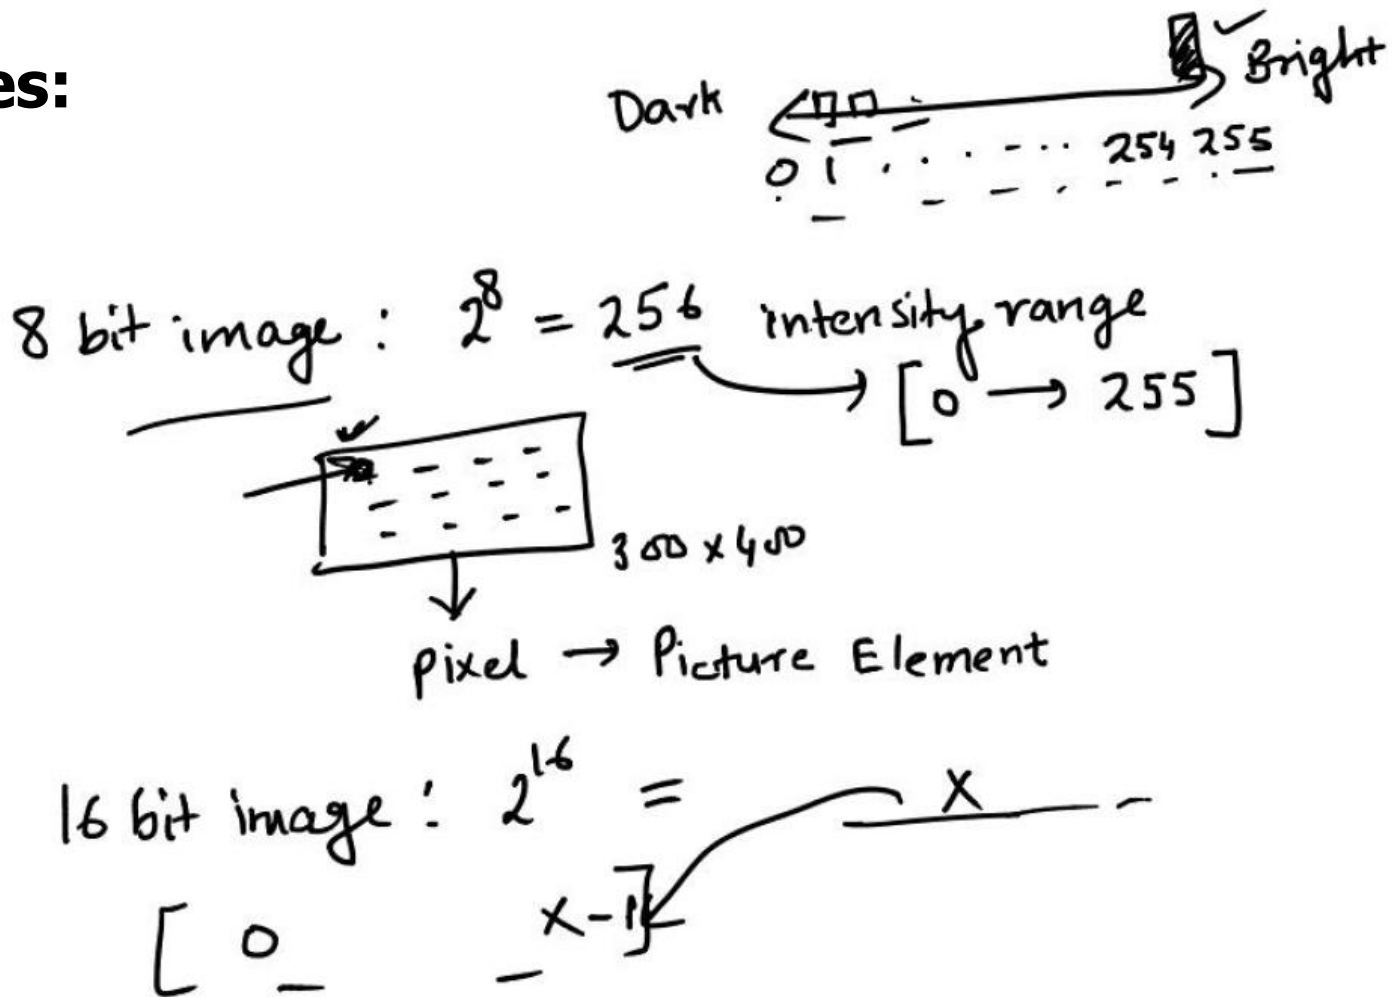 es:
Dark Bright
0 1 . . . - . . 254 255
8 bit image : 2⁸ = 256 intensity range
[0 → 255]
300 x 400
pixel → Picture Element
16 bit image : 2¹⁶ = X
[ 0 _ _ X-1]